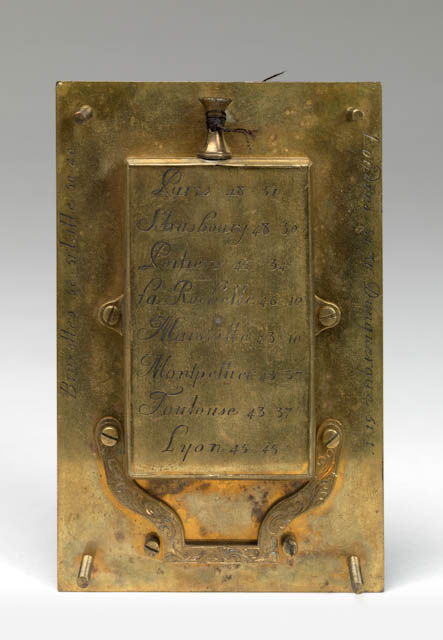 Paris 48 51
Strasbourg 48 30
Poitiers 46 34
la Rochelle 46 10
Marseille 43 10
Montpellier 43 37
Toulouse 43 37
Lyon 45 45
Bruxelles 50 50
Dunquerque 51 1